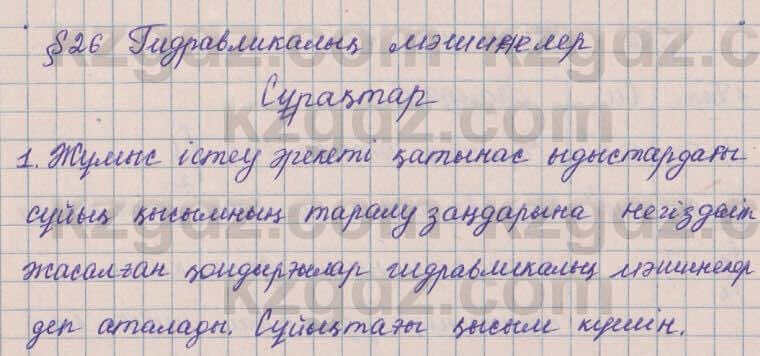 §26 Гидравликалық машинелер
Сұрақтар
1. Жұмыс істеу әрекеті қатынас ыдыстардағы
сұйық қысымның таралу заңдарына негізделіп
жасалған қондырғылар гидравликалық машинелер
деп аталады. Сұйықтағы қысым күшін.
kzgdz.com
kzgdz.com
kzgdz.com
kzgdz.com